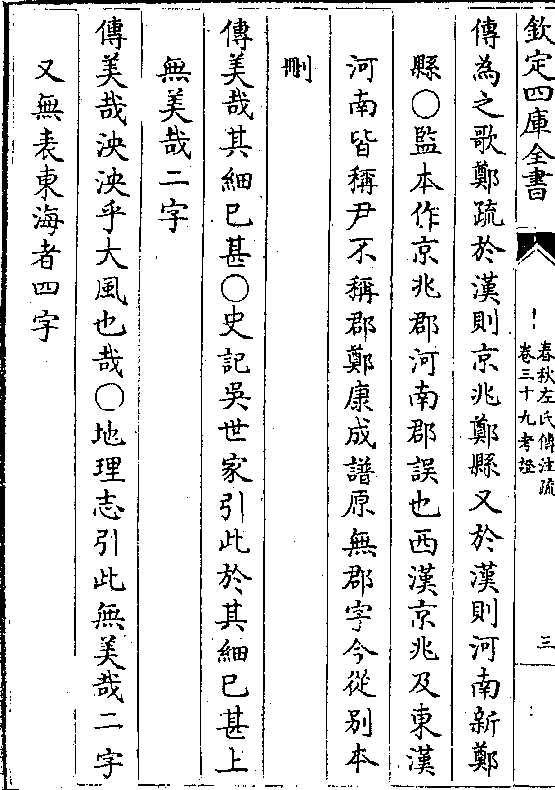 欽定四庫全書
春秋左氏傳注疏
卷三十九考證
三
傳為之歌鄭疏於漢則京兆鄭縣又於漢則河南新鄭
縣○監本作京兆郡河南郡誤也西漢京兆及東漢
河南皆稱尹不稱郡鄭康成譜原無郡字今從别本
刪
傳美哉其細已甚○史記吳世家引此於其細已甚上
無美哉二字
傳美哉泱泱乎大風也哉○地理志引此無美哉二字
又無表東海者四字